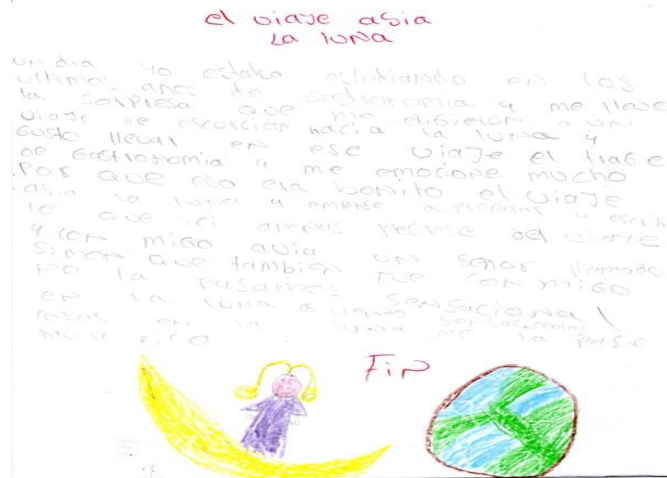 el viaje asia
La luna
un dia yo estaba estudiando en los
ultimos años de Gastronomia y me lleve
la sorpresa que me eligieron a un
viaje de escurcion hacia la luna y
Gusto llevar en ese viaje el traje
de Gastronomia y me emocione mucho
Por que eso era bonito el viaje
asia la luna a empese a preparar y escribir
lo que isi apenas regrese del viaje
y con migo avia un señor llamado
Simon que tambien fue con migo
no la pasamos SenSacional
en la luna asiendo
cosas en la luna me la pase
muy rico
Fin